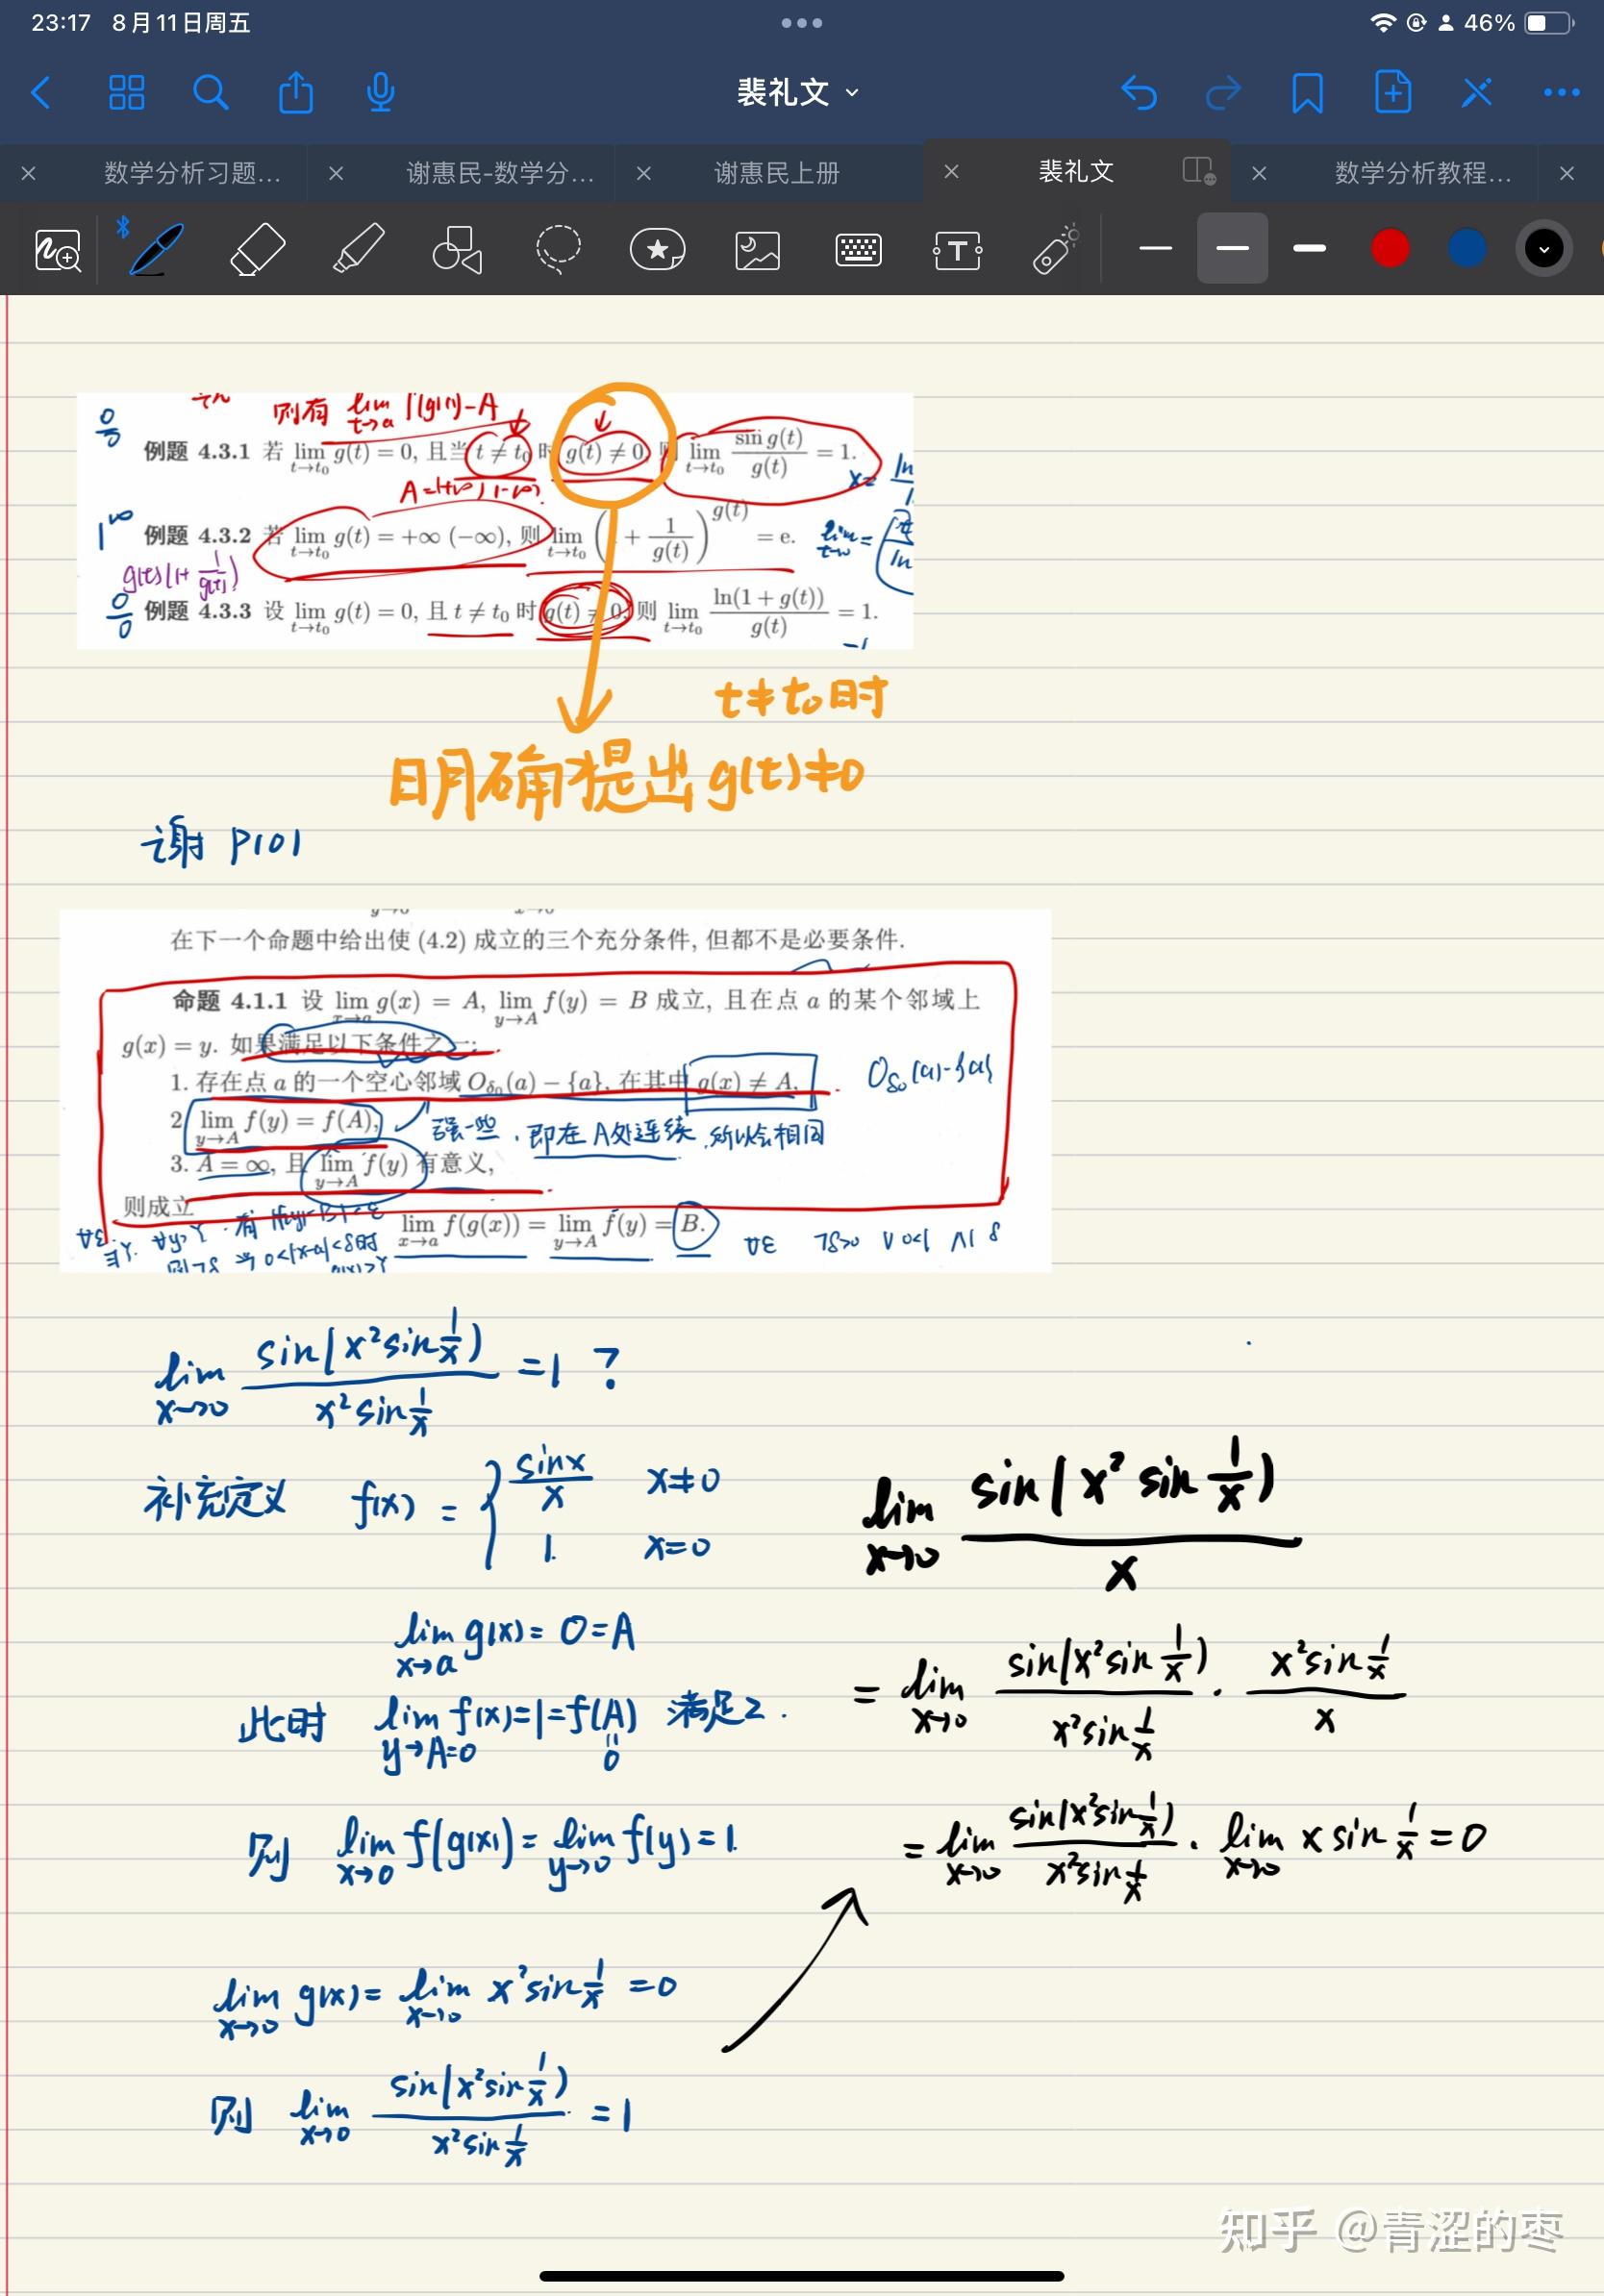 23:17 8月11日周五
46%
裴礼文
数学分析习题...
谢惠民-数学分...
谢惠民上册
裴礼文
数学分析教程...
则有 lim_{t→a} f(g(t))=A
0/0
例题 4.3.1 若 lim_{t→t₀} g(t) = 0, 且当 t ≠ t₀ 时 g(t) ≠ 0, 则 lim_{t→t₀} sin g(t)/g(t) = 1.
1^∞
例题 4.3.2 若 lim_{t→t₀} g(t) = +∞ (−∞), 则 lim_{t→t₀} (1 + 1/g(t))^{g(t)} = e.
0/0
例题 4.3.3 设 lim_{t→t₀} g(t) = 0, 且 t ≠ t₀ 时 g(t) ≠ 0, 则 lim_{t→t₀} ln(1 + g(t))/g(t) = 1.
t≠t₀时
明确提出g(t)≠0
谢 P101
在下一个命题中给出使 (4.2) 成立的三个充分条件, 但都不是必要条件.
命题 4.1.1 设 lim_{x→a} g(x) = A, lim_{y→A} f(y) = B 成立, 且在点 a 的某个邻域上
g(x) = y. 如果满足以下条件之一:
1. 存在点 a 的一个空心邻域 O_{δ₀}(a) − {a}, 在其中 g(x) ≠ A,
O_{δ₀}(a)-{a}
2. lim_{y→A} f(y) = f(A),
强一些, 即在A处连续, 所以会相同
3. A = ∞, 且 lim_{y→A} f(y) 有意义,
则成立
lim_{x→a} f(g(x)) = lim_{y→A} f(y) = B.
lim_{x→0} sin(x²sin 1/x)/(x²sin 1/x) =1 ?
补充定义 f(x) = { sinx/x x≠0
1. x=0
lim_{x→a} g(x)=0=A
此时 lim_{y→A=0} f(x)=1=f(A) 满足2.
0
则 lim_{x→0} f(g(x))=lim_{y→0} f(y)=1.
lim_{x→0} g(x)=lim_{x→0} x²sin 1/x =0
则 lim_{x→0} sin(x²sin 1/x)/(x²sin 1/x) =1
lim_{x→0} sin(x² sin 1/x)/x
= lim_{x→0} sin(x²sin 1/x)/(x²sin 1/x) · (x²sin 1/x)/x
= lim_{x→0} sin(x²sin 1/x)/(x²sin 1/x) · lim_{x→0} x sin 1/x =0
知乎 @青涩的枣